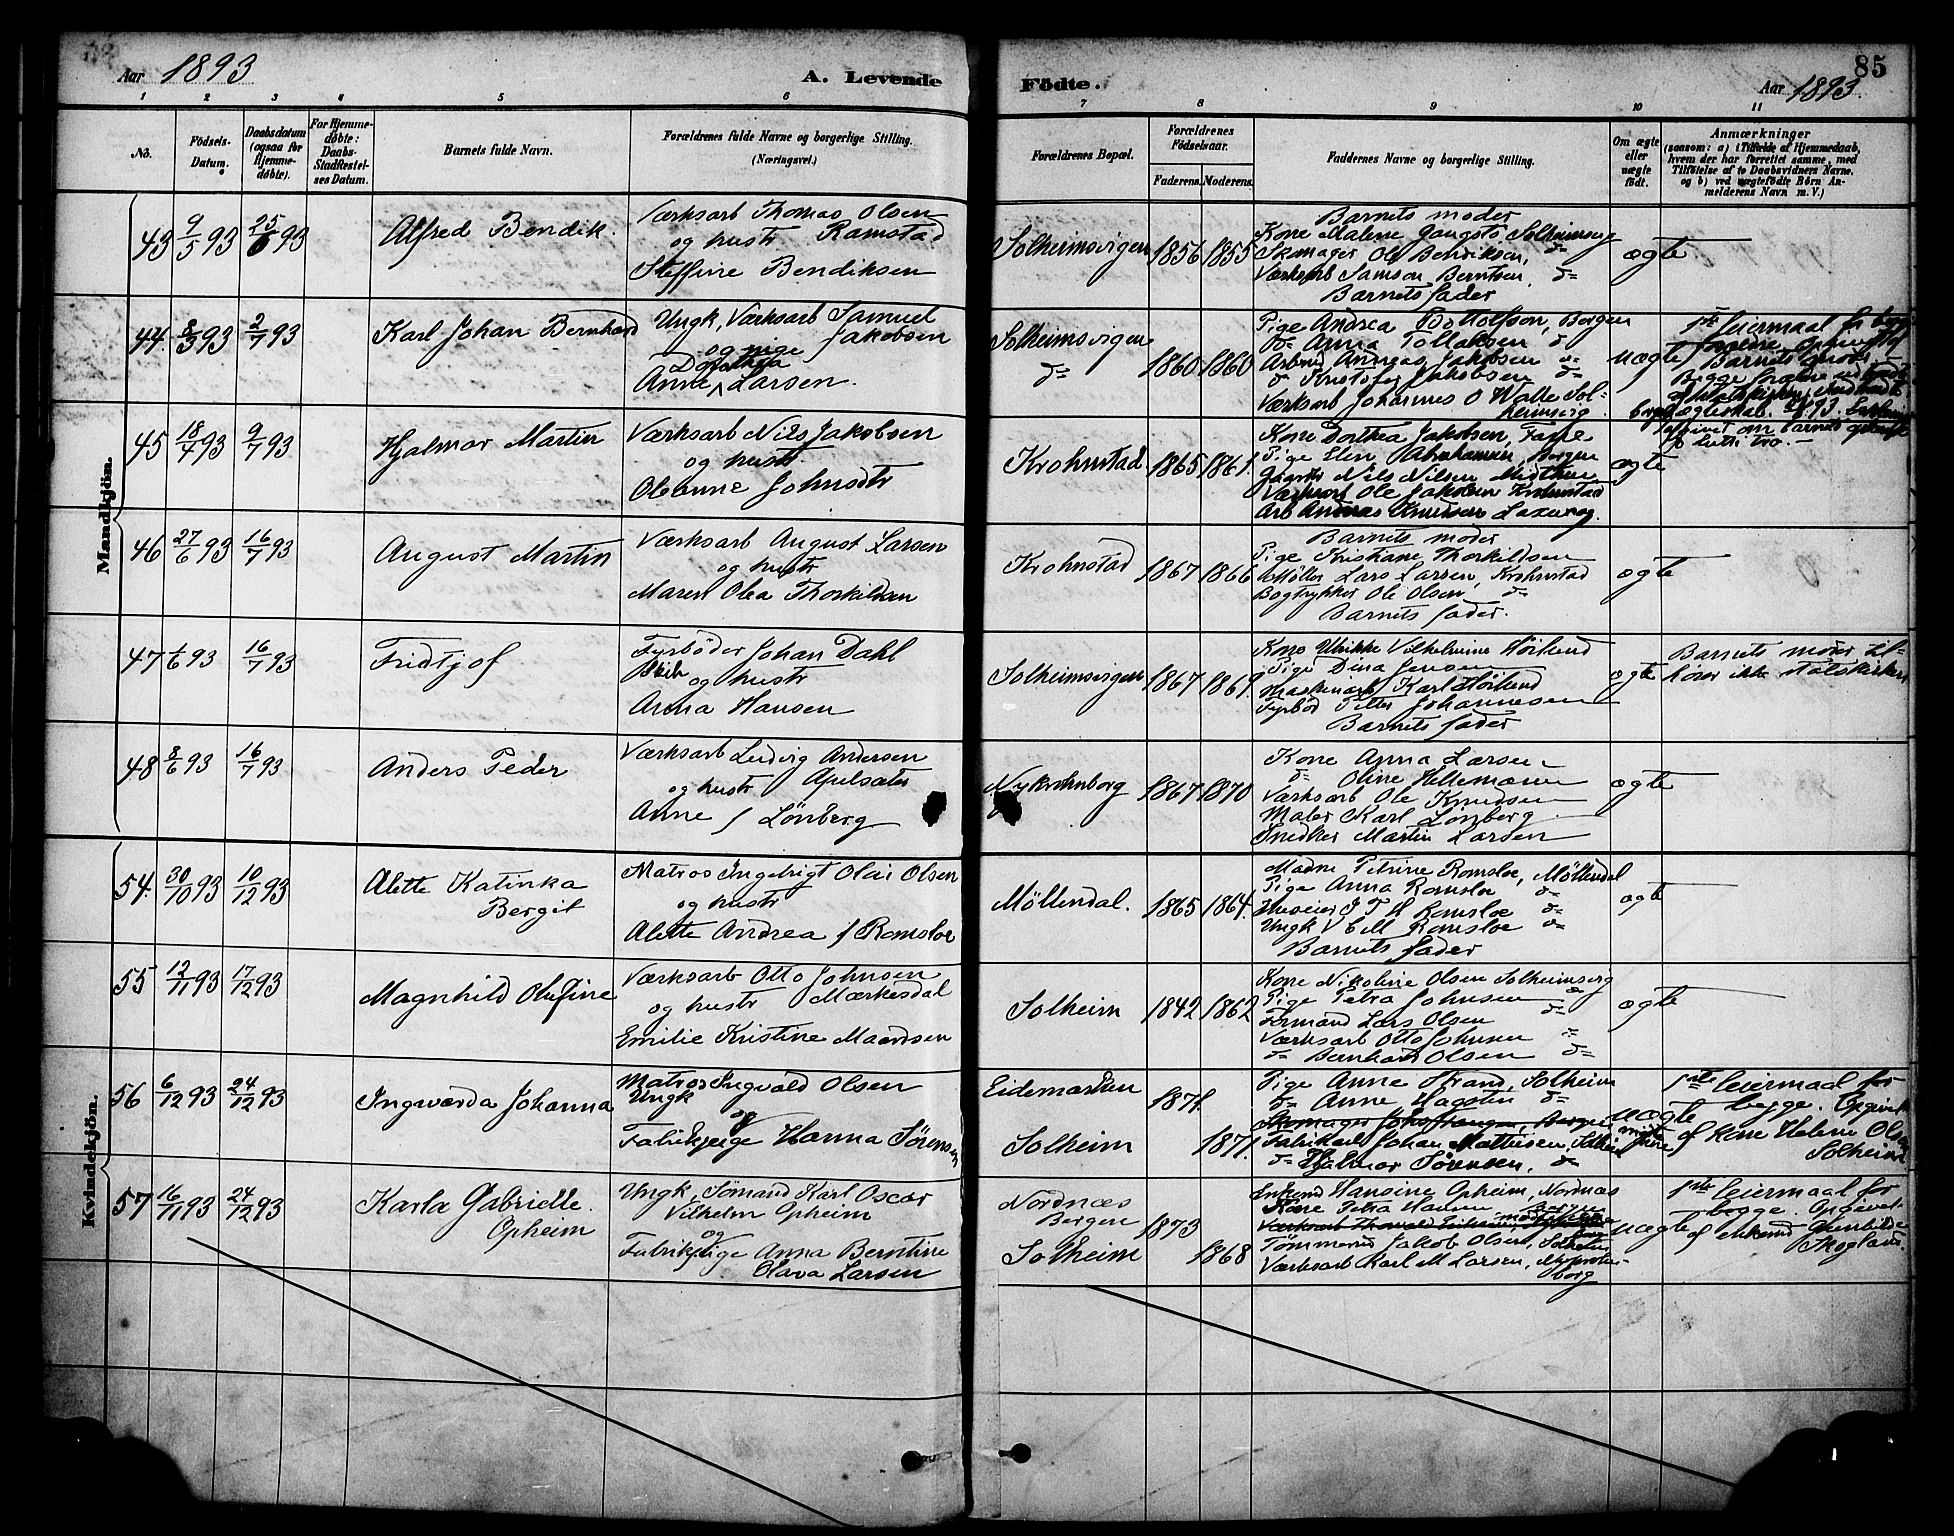 Aar 1893
A. Levende
Födte.
85
Aar 1893.
1 2 3 4 5 6 7 8 9 10 11
No.
Födsels-
Datum.
Daabsdatum
(ogsaa for
Hjemme-
døbte).
For Hjemme-
døbte:
Daabs-
Stadfæstel-
ses Datum.
Barnets fulde Navn.
Forældrenes fulde Navne og borgerlige Stilling.
(Næringsvei.)
Forældrenes Bopæl.
Forældrenes
Födselsaar.
Faderens. Moderens.
Faddernes Navne og borgerlige Stilling.
Om ægte
eller
uægte
födt.
Anmærkninger
(saasom: a) i Tilfælde af Hjemmedaab,
hvem der har forrettet samme, med
Tilföielse af to Daabsvidners Navne.
og b) ved uægtefödte Börn An-
melderens Navn m. V.)
Mandkjön.
43 9/5 93 25/6 93
Alfred Bendik.
Værksarb Thomas Olsen
og hustr Ramstad
Steffine Bendiksen
Solheimsvigen
1856 1855
Barnets moder
Kone Malene Gaugstö Solheimsvig
Skomager Ole Bendiksen, do
Værksarb Samson Berntsen, do
Barnets fader
ægte
44. 8/3 93 2/7 93
Karl Johan Bernhard
Ungk, Værksarb Samuel
og pige Jakobsen
Dorothea
Anne Larsen.
Solheimsvigen
do
1860 1860
Pige Andrea Bottolfson, Bergen
do Anna Tollaksen do
Arbmd Andreas Jakobsen do
do Kristofer Jakobsen do
Værksarb Johannes O Walle Sol-
heimsvig.
uægte
1ste leiermaal for
Barnets moder
45 18/4 93 9/7 93
Hjalmar Martin
Værksarb Nils Jakobsen
og hustr.
Oleanne Johnsdtr
Krohnstad
1865 1861.
Kone Dorthea Jakobsen, Fane
Pige Elen Abrahamsen, Bergen
Nils Nilsen
Værksarb Ole Jakobsen Krohnstad
Arb Andreas Knudsen Laxevaag.
ægte
46 27/6 93 16/7 93
August Martin
Værksarb August Larsen
og hustr
Maren Olea Thorkildsen
Krohnstad
1867 1866
Barnets moder
Pige Kristiane Thorkildsen
Møller Lars Larsen, Krohnstad
Bogtrykker Ole Olsen, do
Barnets fader.
ægte
47 1/6 93 16/7 93
Fridtjof
Fyrbøder Johan Dahl
Skib og hustr
Anna Hansen
Solheimsvigen
1867 1869.
Kone Ulrikke Vilhelmine Hörlund
Pige Dina Jensen
Maskinarb Karl Hörlund
Fyrbød Petter Johannesen
Barnets fader
ægte
Barnets moder til-
hörer ikke statskirken
48 8/6 93 16/7 93
Anders Peder
Værksarb Ludvig Andersen
og hustr Apelsæter
Anne f Lönberg
Nykrohnborg
1867 1870
Kone Anna Larsen
do Oline Hellemann
Værksarb Ole Knudsen
Maler Karl Lönberg
Snedker Martin Larsen
ægte
Kvindekjön.
54. 30/10 93 10/12 93
Alette Katinka
Bergit
Matros Ingebrigt Olai Olsen
og hustr
Alette Andrea f Romsloe
Möllendal.
1865 1864.
Madme Petrine Romsloe, Möllendal
Pige Anna Romsloe do
Huseier J T H Romsloe do
Ungk V E M Romsloe do
Barnets fader
ægte
55 12/11 93 17/12 93
Magnhild Olufine
Værksarb Otto Johnsen
og hustr Mærkesdal
Emilie Kristine Maardsen
Solheim
1842 1862
Kone Nikoline Olsen Solheimsvig
Pige Petra Johnsen do
Formand Lars Olsen do
Værksarb Otto Johnsen do
do Bernhard Olsen do
ægte
56 6/12 93 24/12 93
Ingwarda Johanna
Matros Ingvald Olsen
Ungk og
Fabrikpige Hanna Sörensen
Eidemarken
Solheim
1871.
1871.
Pige Anne Strand, Solheim
do Anne Hagsten do
Fabrikarb Johan Mathisen, Solheim
do Hjalmar Sörensen, do
uægte
1ste leiermaal for
begge. Opgivet
af Kone Helene Olsen
Solheim
57 16/11 93 24/12 93
Karla Gabrielle.
Opheim
Ungk, Sömand Karl Oscar
Vilhelm Opheim
og
Fabrikpige Anna Berntine
Olava Larsen
Nordnæs
Bergen
Solheim
1873
1868
Enkemd Hansine Opheim, Nordnæs
Kone Petra Hansen Bergen
Tömmermd Jakob Olsen, Solheim
Værksarb Karl M Larsen, Nykrohn-
borg
uægte
1ste leiermaal for
begge. Opgivet
af enkemd Gunhilde
Skogland.